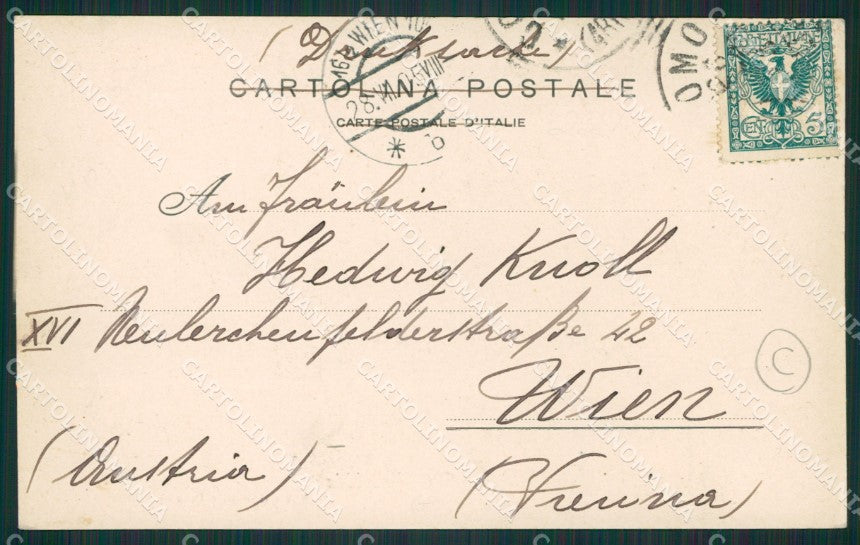 (Drucksache)
CARTOLINA POSTALE
CARTE POSTALE D'ITALIE
16/2 WIEN 10
28.VI.
6
2
OMO
POSTE ITALIANE
CENT 5
An Fräulein
Hedwig Knoll
XVI Neulerchenfelderstraße 22
Wien
C
(Austria)
(Vienna)
CARTOLINOMANIA